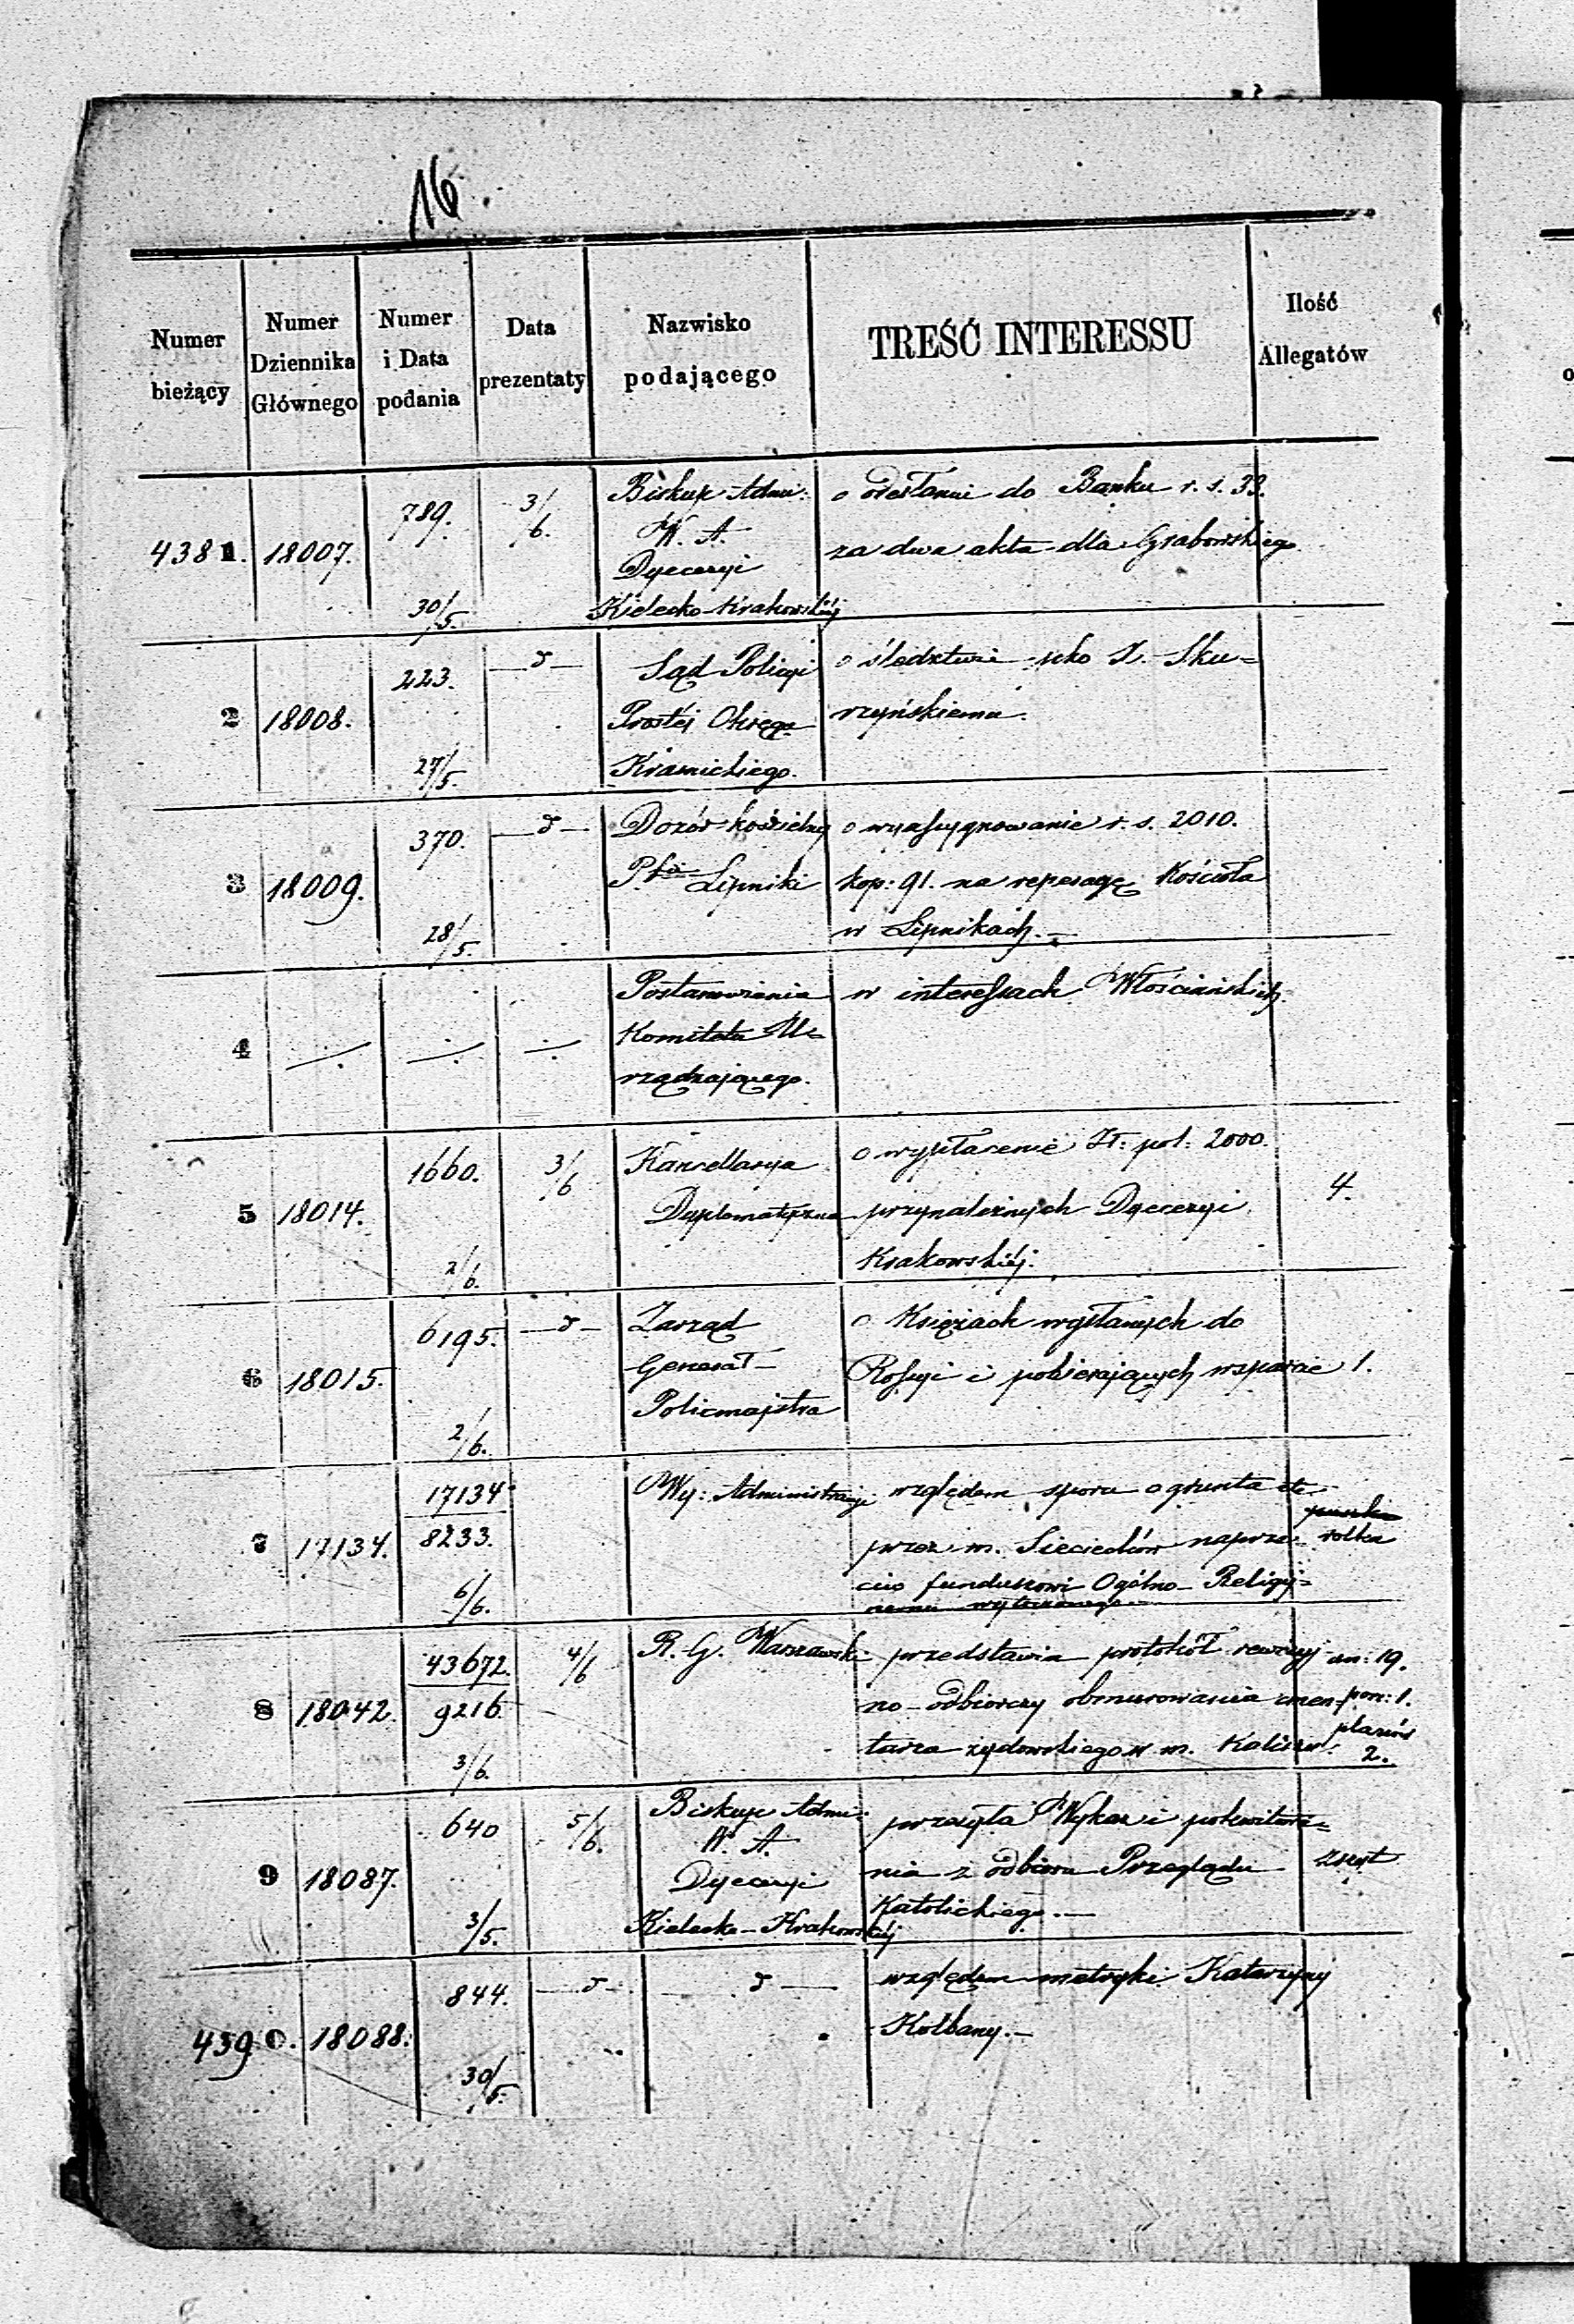 16.
Numer bieżący
Numer Dziennika Głównego
Numer i Data podania
Data prezentaty
Nazwisko podającego
TREŚĆ INTERESSU
Ilość Allegatów
4381. 18007. 789. 30/5. 3/6.
Biskup Admi:
W. A.
Dyecezyi
Kielecko-Krakowskiéj
o odesłanie do Banku r. s. 33.
za dwa akta dla Grabowskiego
2 18008. 223. 27/5. —d—
Sąd Policyi
Prostéj Okręgu
Kraśnickiego.
o śledztwie -wko X. Sku=
rzyńskiemu.
3 18009. 370. 28/5. —d—
Dozór kościelny
Lipniki
o wyassygnowanie r. s. 2010.
kop: 91. na reperacyę Kościoła
w Lipnikach.—
4
Postanowienia
Komitetu U=
rządzającego.
w interessach Włościańskich
5 18014. 1660. 2/6. 3/6
Kancellarya
Dyplomatyczna
o wypłacenie Zł: pol: 2000.
przynależnych Dyecezyi
Krakowskiéj.
4.
6 18015. 6195. 2/6. —d—
Zarząd
Generał-
Policmajstra
o Księżach wysłanych do
Rossyi i pobierających wsparcie
1.
7 17134. 17134 8233. 6/6.
Wy: Administracyi
względem sporu o grunta etc.
przez m. Sieciechów naprze-
ciw funduszowi Ogólno-Religij=
nemu wytoczonego
rolka
8 18042. 43672. 9216 3/6. 4/6
R. G. Warszawski
przedstawia protokół rewizyj
no-odbiorczy obmurowania cmen-
tarza żydowskiego w m. Kaliszu.
an: 19.
por: 1.
planów
2.
9 18087. 640 3/5. 5/6.
Biskup Admi:
W. A.
Dyecezyi
Kielecko-Krakowskiéj
przesyła Wykaz i pokwitowa=
nia z odbioru Przeglądu
Katolickiego.—
Zszyt
4390. 18088. 844. 30/5. —d— —d—
względem metryki Katarzyny
Kolbany.—